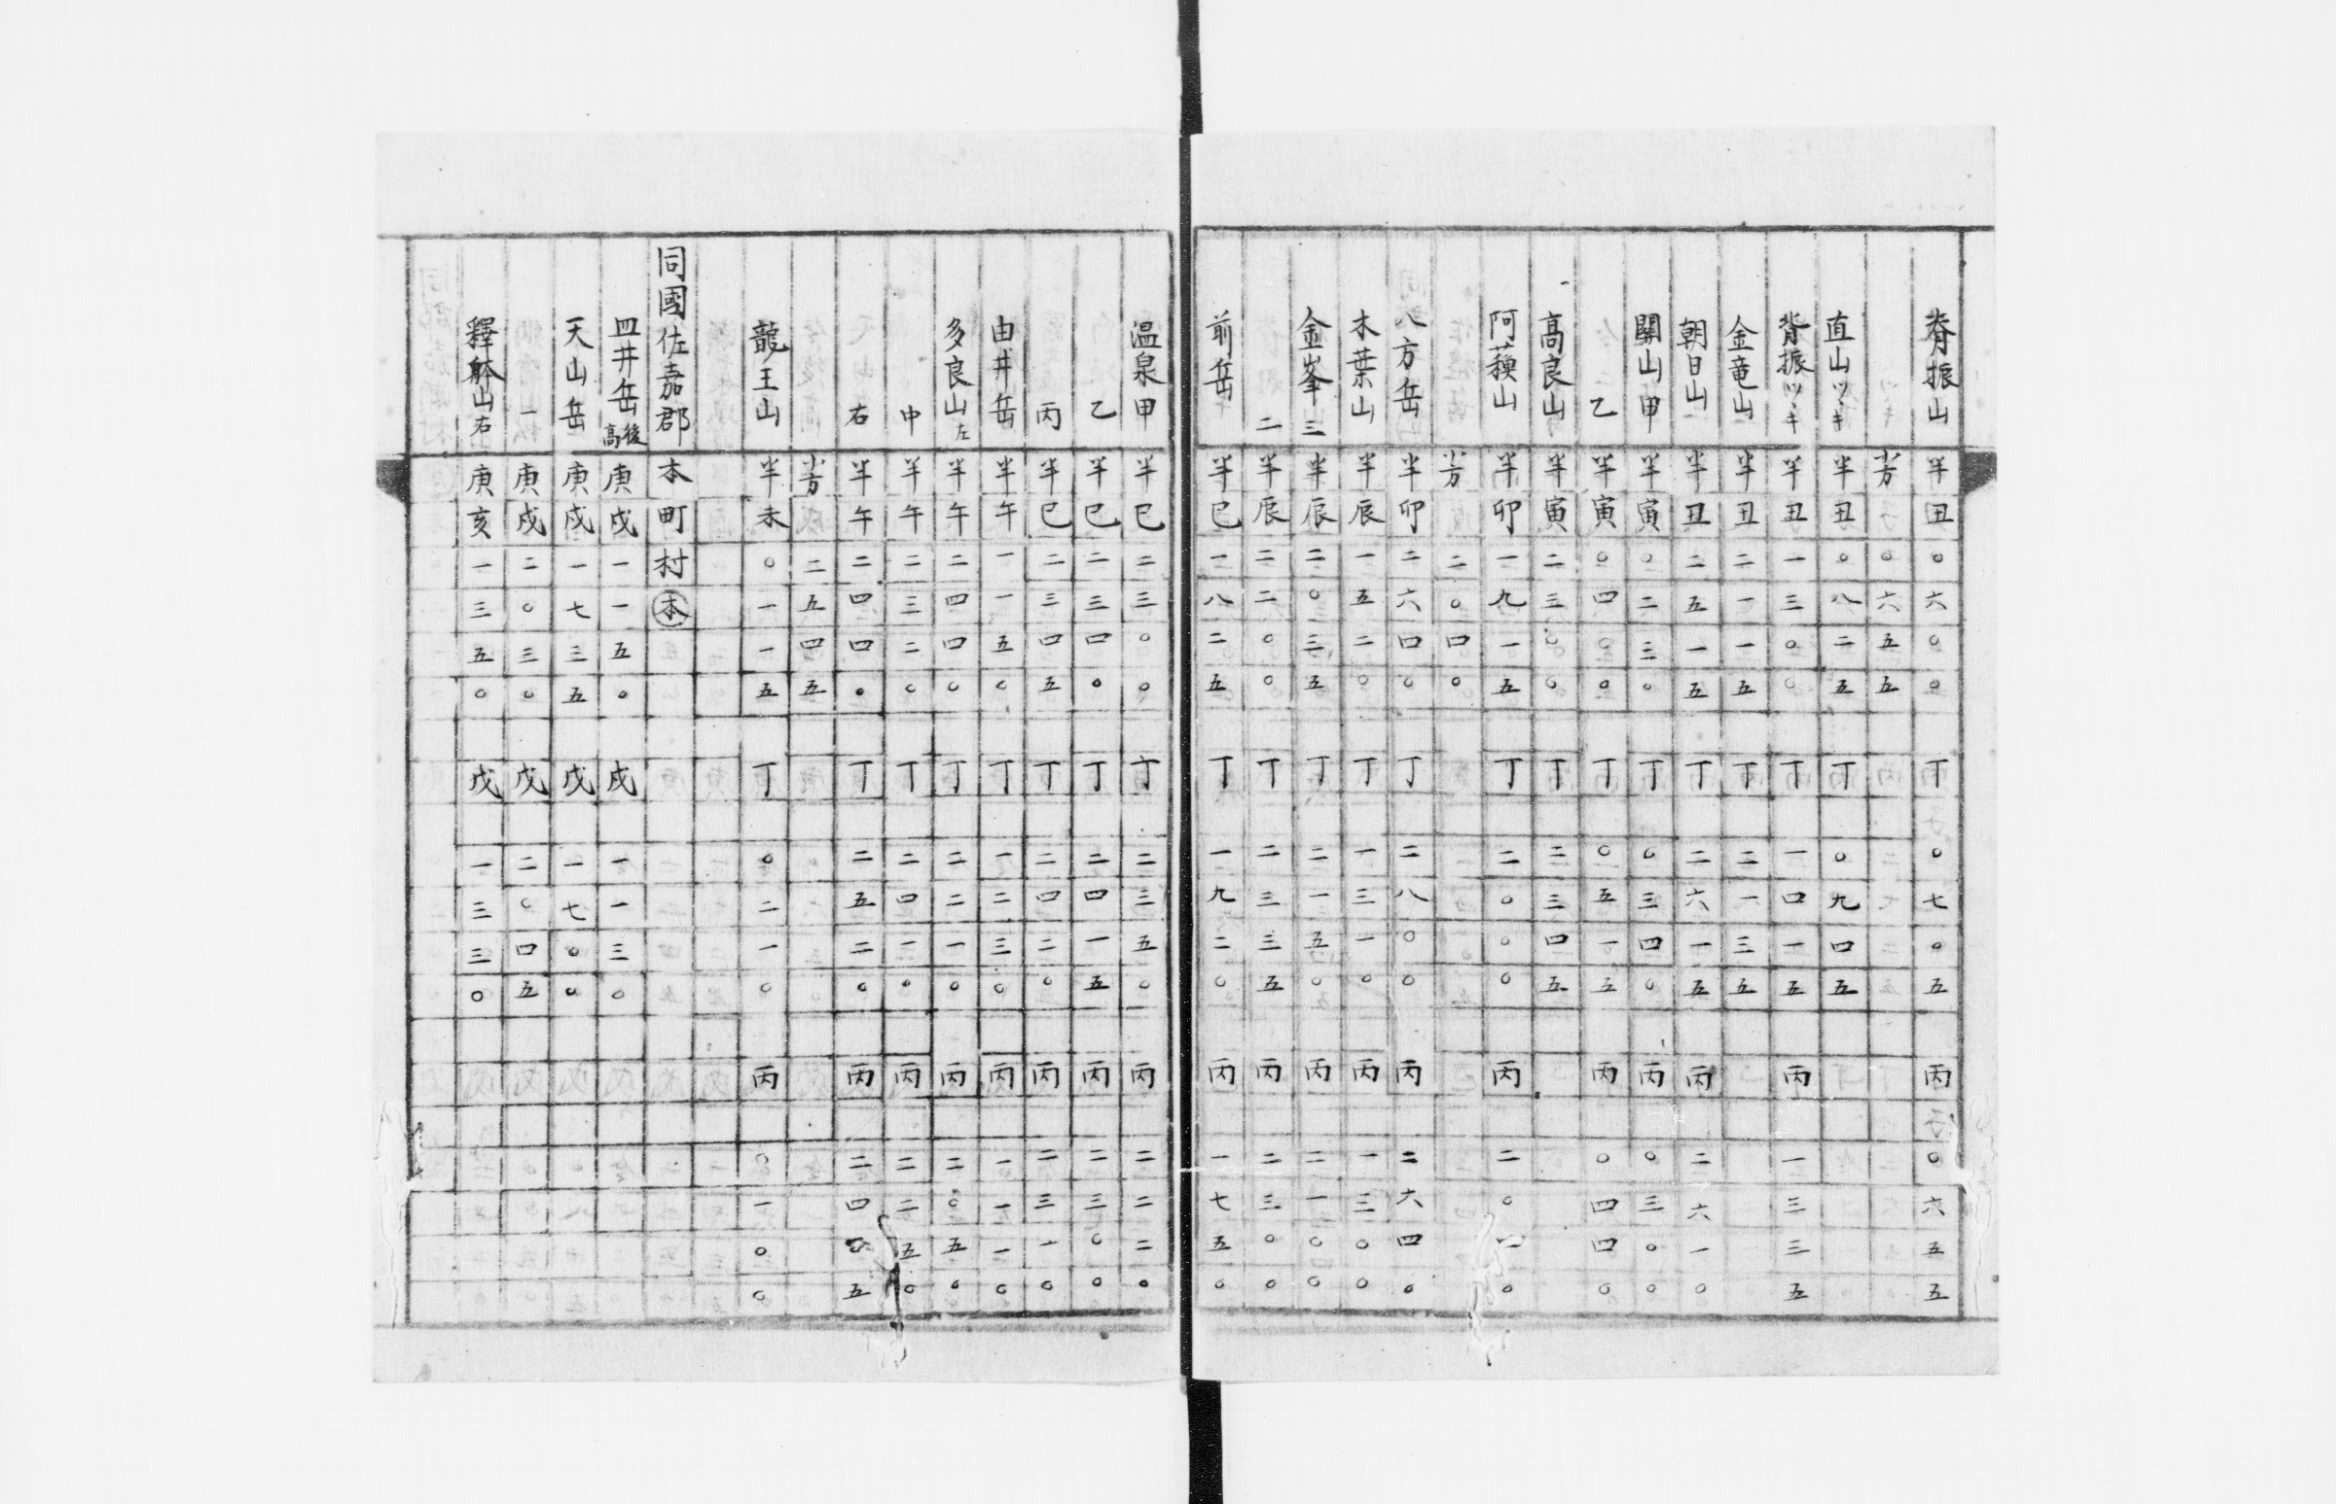 脊振山 半丑〇六〇〇 丁〇七〇五 丙子〇六五五
〇六五五
直山ツヽキ 半丑〇八二五 丁〇九四五
脊振ツヽキ 半丑一三〇〇 丁一四一五 丙一三三五
金竜山 半丑二一一五 丁二一三五
朝日山 半丑二五一五 丁二六一五 丙二六一〇
關山甲 半寅〇二三〇 丁〇三四〇 丙〇三〇〇
乙 半寅〇四〇〇 丁〇五一五 丙〇四四〇
高良山 半寅二三〇〇 丁二三四五
阿蘓山 半卯一九一五 丁二〇〇〇 丙二〇一〇
二〇四〇
八方岳 半卯二六四〇 丁二八〇〇 丙二六四〇
木葉山 半辰一五二〇 丁一三一〇 丙一三〇〇
金峯山三 半辰二〇三五 丁二一五〇 丙二一〇〇
二 半辰二二〇〇 丁二三三五 丙二三〇〇
前岳 半巳一八二五 丁一九二〇 丙一七五〇
温泉甲 半巳二三〇〇 丁二三五〇 丙二二二〇
乙 半巳二三四〇 丁二四一五 丙二三〇〇
丙 半巳二三四五 丁二四二〇 丙二三一〇
由井岳 半午一一五〇 丁一二三〇 丙一一一〇
多良山左 半午二四四〇 丁二二一〇 丙二〇五〇
中 半午二三二〇 丁二四一〇 丙二二五〇
右 半午二四四〇 丁二五二〇 丙二四〇五
二五四五
龍王山 半未〇一一五 丁〇二一〇 丙〇一〇〇
同國佐嘉郡本町村本
皿井岳後高 庚戌一一五〇 戌一一三〇
天山岳 庚戌一七三五 戌一七〇〇
一 庚戌二〇三〇 戌二〇四五
釋躰山右 庚亥一三五〇 戌一三三〇